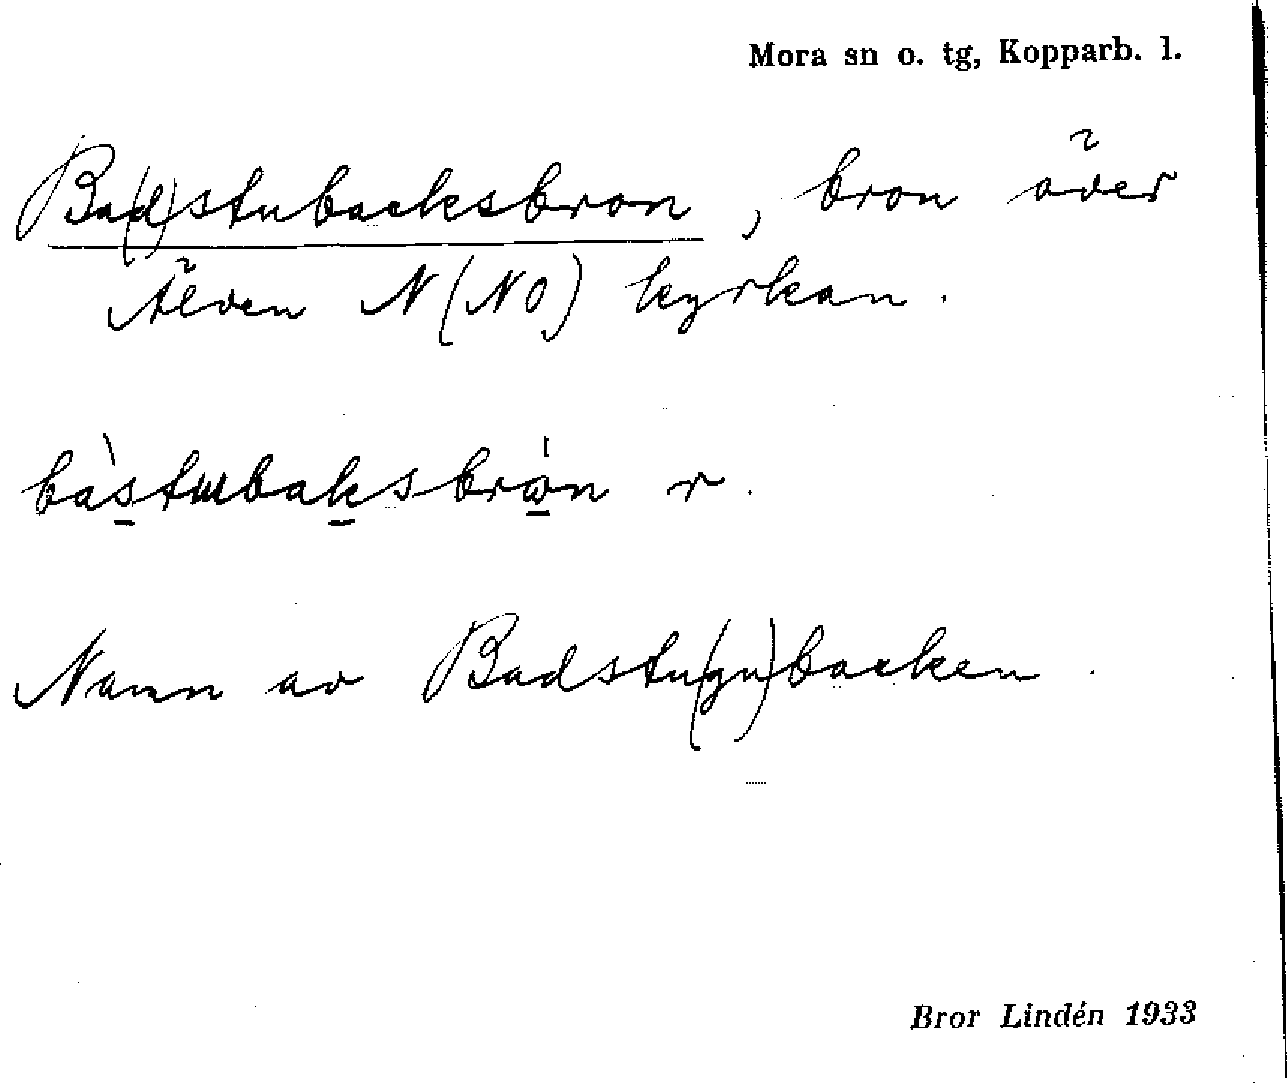 Mora sn o. tg, Kopparb. l.
Ba(d)stubacksbron, bron över
Älven N (NO) kyrkan.
bàstɯbaksbrώn r.
Namn av Badstu(gu)backen.
Bror Lindén 1933